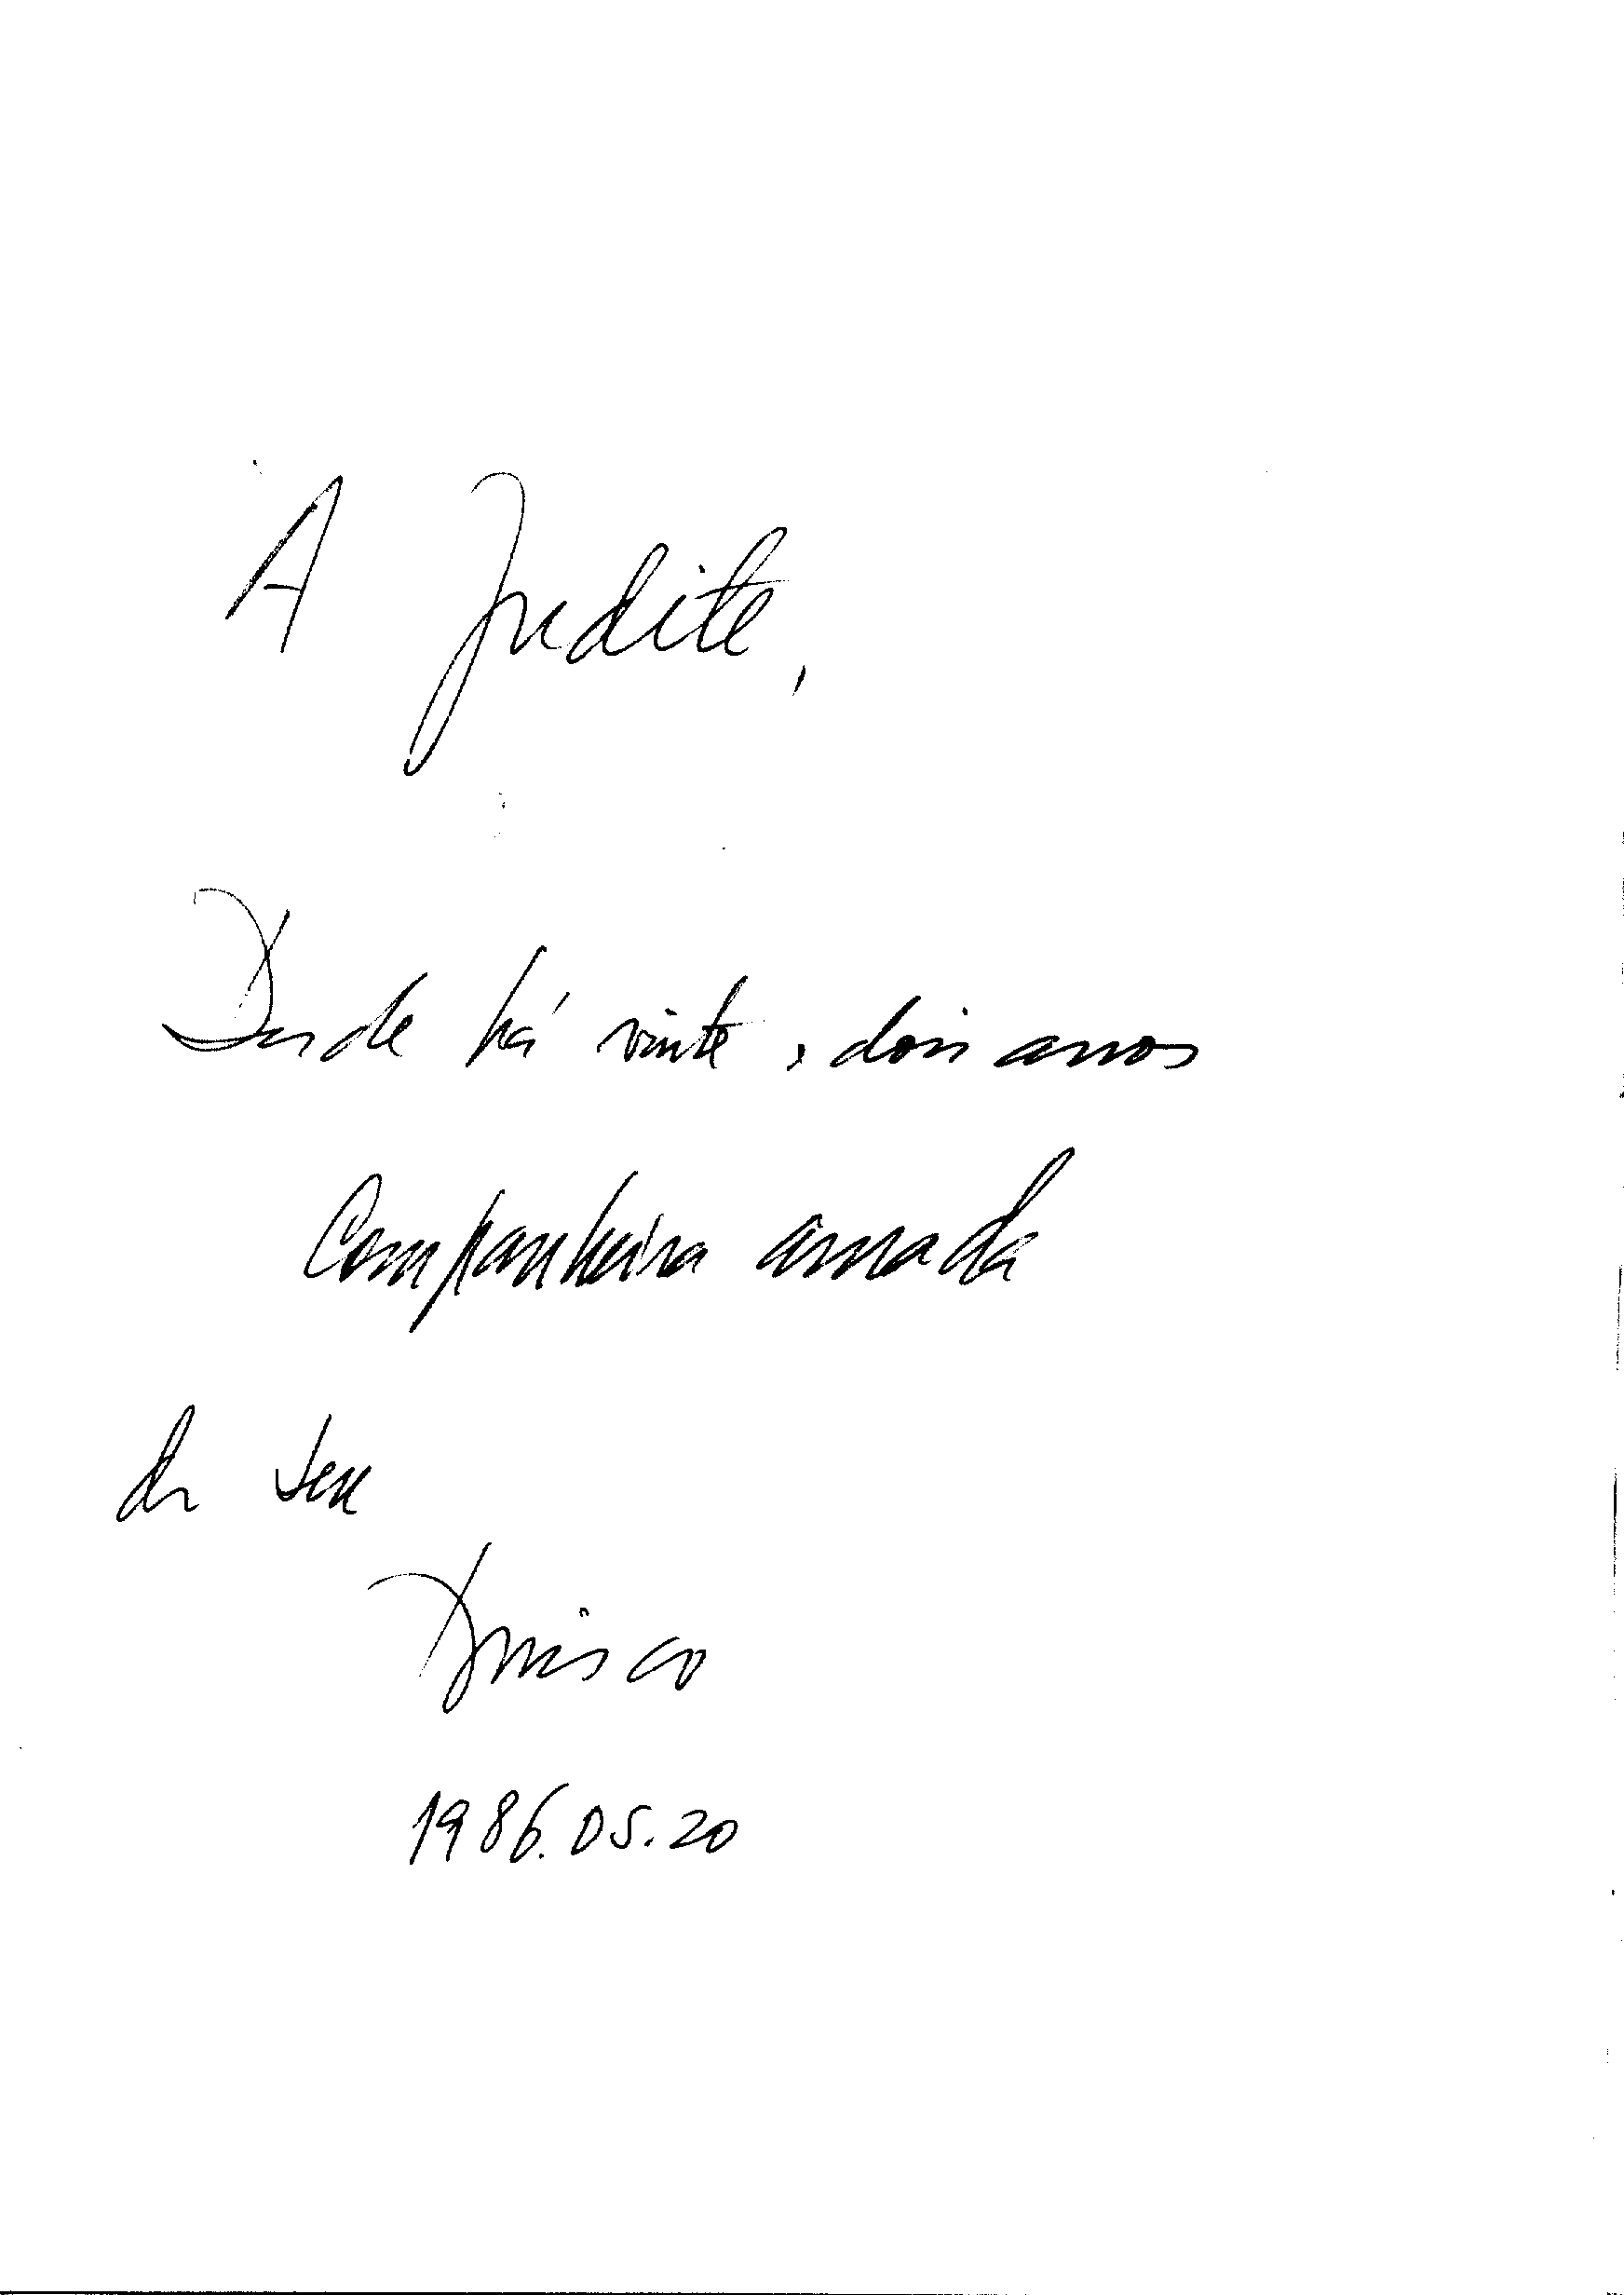 A Judite,
Desde há vinte e dois anos
Companheira amada
do seu
1986.05.20